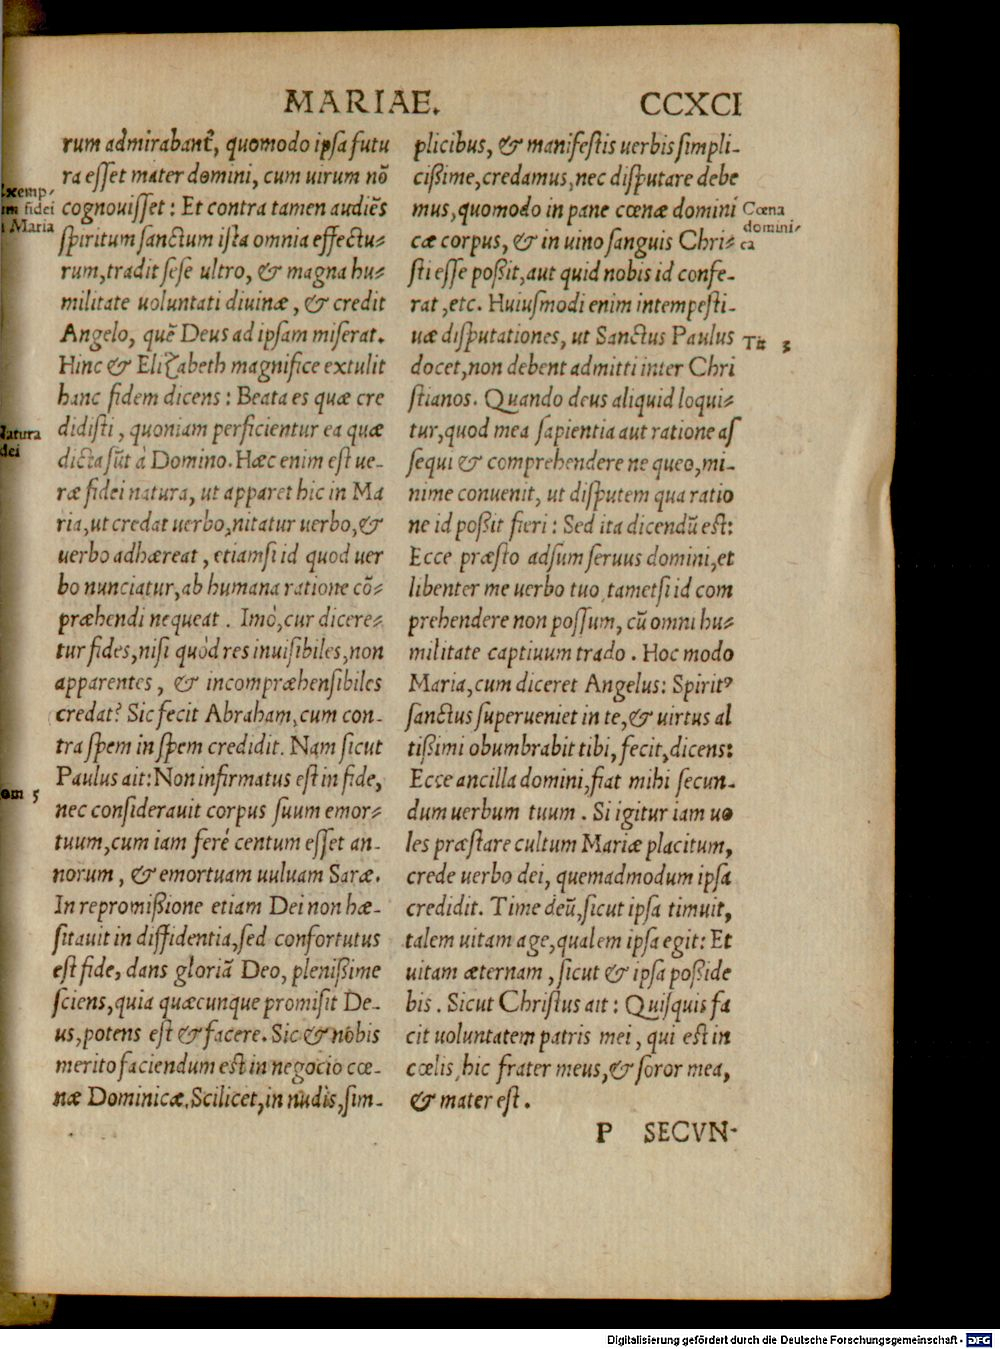 MARIAE. CCXCI
rum admirabant̃, quomodo ipſa futu
ra eſſet mater domini, cum uirum nõ
cognouiſſet : Et contra tamen audiẽs
ſpiritum ſanctum iſta omnia effectu-
rum, tradit ſeſe ultro, & magna hu-
militate uoluntati diuinæ, & credit
Angelo, quẽ Deus ad ipſam miſerat.
Hinc & Elizabeth magnifice extulit
hanc fidem dicens : Beata es quæ cre
didiſti, quoniam perficientur ea quæ
dicta ſũt à Domino. Hæc enim eſt ue-
ræ fidei natura, ut apparet hic in Ma
ria, ut credat uerbo, nitatur uerbo, &
uerbo adhæreat, etiamſi id quod uer
bo nunciatur, ab humana ratione cõ-
præhendi nequeat. Imò, cur dicere-
tur fides, niſi quòd res inuiſibiles, non
apparentes, & incompræhenſibiles
credat? Sic fecit Abraham, cum con-
tra ſpem in ſpem credidit. Nam ſicut
Paulus ait: Non infirmatus eſt in fide,
nec conſiderauit corpus ſuum emor-
tuum, cum iam ferè centum eſſet an-
norum, & emortuam uuluam Saræ.
In repromißione etiam Dei non hæ-
ſitauit in diffidentia, ſed confortutus
eſt fide, dans gloriã Deo, pleniſſime
ſciens, quia quæcunque promiſit De-
us, potens eſt & facere. Sic & nobis
merito faciendum eſt in negocio cœ-
næ Dominicæ. Scilicet, in nudis, ſim-
fidei
Maria
Natura
dei
om 5
plicibus, & manifeſtis uerbis ſimpli-
cißime, credamus, nec diſputare debe
mus, quomodo in pane cœnæ domini
cæ corpus, & in uino ſanguis Chri-
ſti eſſe poßit, aut quid nobis id confe-
rat, etc. Huiuſmodi enim intempeſti-
uæ diſputationes, ut Sanctus Paulus
docet, non debent admitti inter Chri
ſtianos. Quando deus aliquid loqui-
tur, quod mea ſapientia aut ratione aſ
ſequi & comprehendere ne queo, mi-
nime conuenit, ut diſputem qua ratio
ne id poßit fieri : Sed ita dicendũ eſt:
Ecce præſto adſum ſeruus domini, et
libenter me uerbo tuo, tametſi id com
prehendere non poſſum, cũ omni hu-
militate captiuum trado. Hoc modo
Maria, cum diceret Angelus: Spiritꝰ
ſanctus ſuperueniet in te, & uirtus al
tißimi obumbrabit tibi, fecit, dicens:
Ecce ancilla domini, fiat mihi ſecun-
dum uerbum tuum. Si igitur iam uo
les præſtare cultum Mariæ placitum,
crede uerbo dei, quemadmodum ipſa
credidit. Time deũ, ſicut ipſa timuit,
talem uitam age, qualem ipſa egit: Et
uitam æternam, ſicut & ipſa poßide
bis. Sicut Chriſtus ait : Quiſquis fa
cit uoluntatem patris mei, qui eſt in
cœlis, hic frater meus, & ſoror mea,
& mater eſt.
Cœna
domini-
ca
Tit 3
P SECVN-
Digitalisierung gefördert durch die Deutsche Forschungsgemeinschaft - DFG